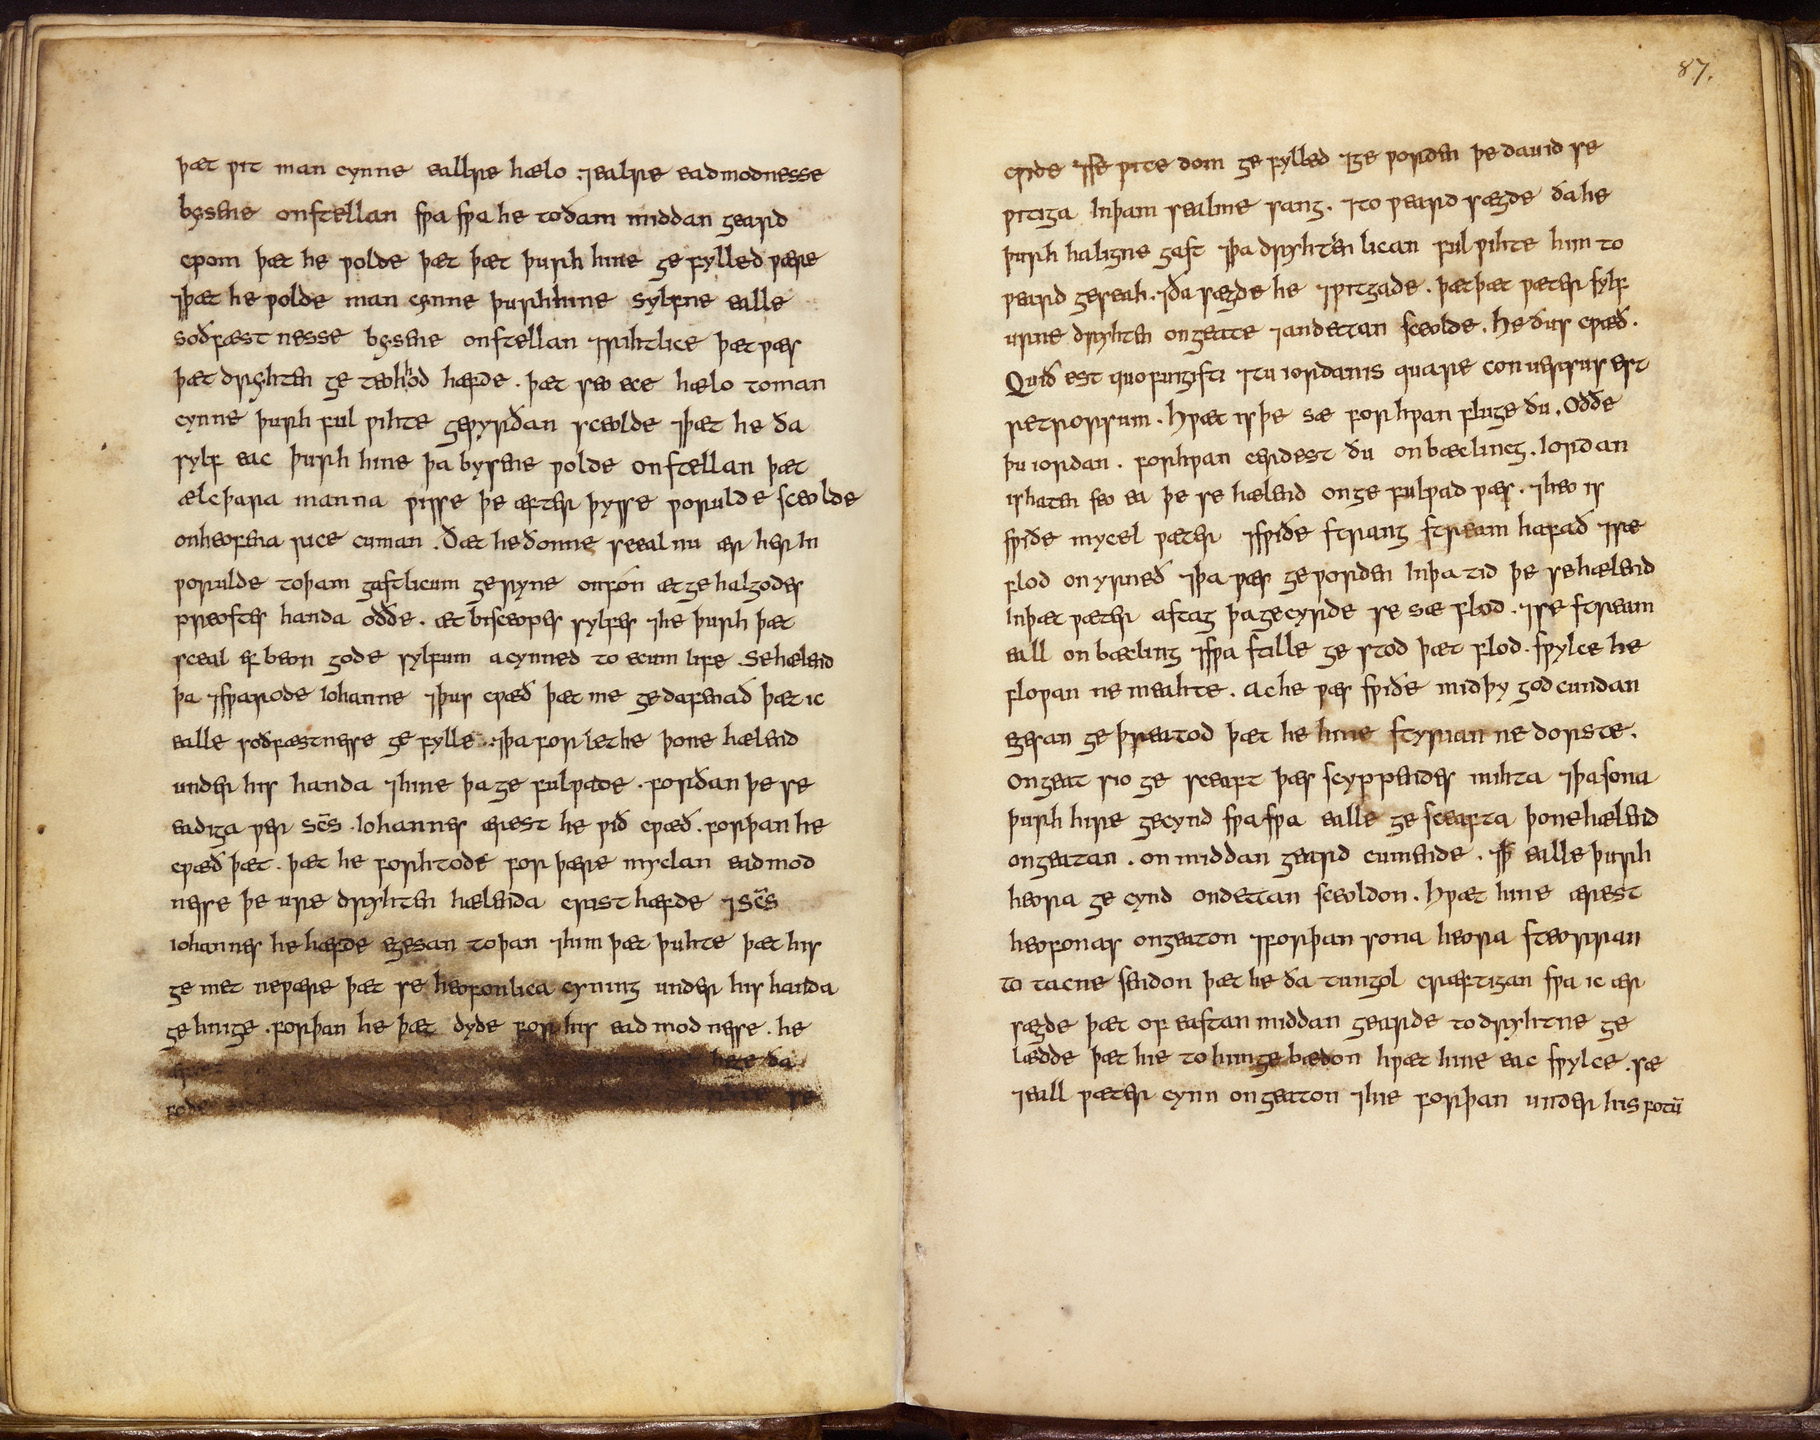 þæt ƿit man cynne eallre hælo ⁊ealre eadmodnesse
bysene onstellan swa swa he toðam middan geard
cƿom þæt he ƿolde þæt þæt þurh hine ge fylled ƿære
⁊þæt he ƿolde man cynne þurhhine sylfne ealle
soðfæst nesse bysene onstellan ⁊rihtlice þæt ƿæs
þæt dryhten ge teohhod hæfde . þæt seo ece hælo toman
cynne þurh ful ƿihte geƿyrðan sceolde ⁊þæt he ða
sylf eac þurh hine þa bysene ƿolde onstellan þæt
ælc þara manna ƿisse þe æfter þysse ƿorulde sceolde
onheofena rice cuman . Ðæt he ðonne sceal nu ær her In
ƿorulde toþam gastlicum geryne onfón æt ge halgodes
preostes handa oððe . æt bisceopes sylfes ⁊he þurh þæt
sceal eft beon gode sylfum acynned to ecum life . Se hælend
þa ⁊sƿarode Iohanne ⁊þus cƿæð þæt me gedafenað þæt ic
ealle soðfæstnesse ge fylle .:⁊þa for let he þone hælend
under his handa ⁊hine þa ge fulƿade . forðan þe se
eadiga ƿer scs̄ . Iohannes ærest he ƿið cƿæð . forþan he
cƿæð þæt . þæt he forhtode for þære myclan eadmod
nesse þe ure dryhten hælenda crist hæfde ⁊scs̄
iohannes he hæfde egesan toþan ⁊him þæt þuhte þæt his
ge met neƿære þæt se heofonlica cyning under his handa
ge hnige . forþan he þæt dyde for his eadmod nesse . he
ða
fode se
87.
cƿide ⁊se ƿite dom ge fylled ⁊ge ƿorden þe dauid se
ƿitiga Inþam sealme sang . ⁊to ƿeard sægde ða he
þurh haligne gast ⁊þa dryhten lican fulƿihte him to
ƿeard geseah . ⁊ða sægde he ⁊ƿitgade . þætþæt ƿæter sylf
urne dryhten ongeate ⁊andettan sceolde . He ðus cƿæð .
Quid est quo fugisti ⁊tu iordanis quare conuersus est
retrorsum . Hƿæt is þe sæ for hƿan fluge ðu . Oððe
þu iordan . forhƿan cerdest ðu on bæclincg . Iordan
ishaten seo ea þe se hælend onge fulƿad ƿæs . ⁊heo is
sƿiðe mycel ƿæter ⁊sƿiðe strang stream hafað ⁊sæ
flod on yrneð ⁊þa ƿæs geƿorden Inþa tid þe sehælend
Inþæt ƿæter astag þagecyrde se sæ flod . ⁊se stream
eall on bæcling ⁊sƿa stille ge stod þæt flod . sƿylce he
floƿan ne meahte . Ac he ƿæs sƿiðe midþy godcundan
egesan ge þreatod þæt he hine styrian ne dorste .
ongeat sio ge sceaft þæs scyppendes mihta ⁊þasona
þurh hire gecynd sƿa sƿa ealle ge sceafta þonehælend
ongeatan . on middan geard cumende . ⁊hī ealle þurh
heora ge cynd ondettan sceoldon . Hƿæt hine ærest
heofonas ongeaton ⁊forþan sona heora steorran
to tacne sendon þæt he ða tungol cræftigan sƿa ic ær
sægde þæt of eastan middan gearde todryhtne ge
lædde þæt hie tohimgebædon hƿæt hine eac sƿylce . sæ
⁊eall ƿæter cynn ongeaton ⁊hie forþan under his fotū